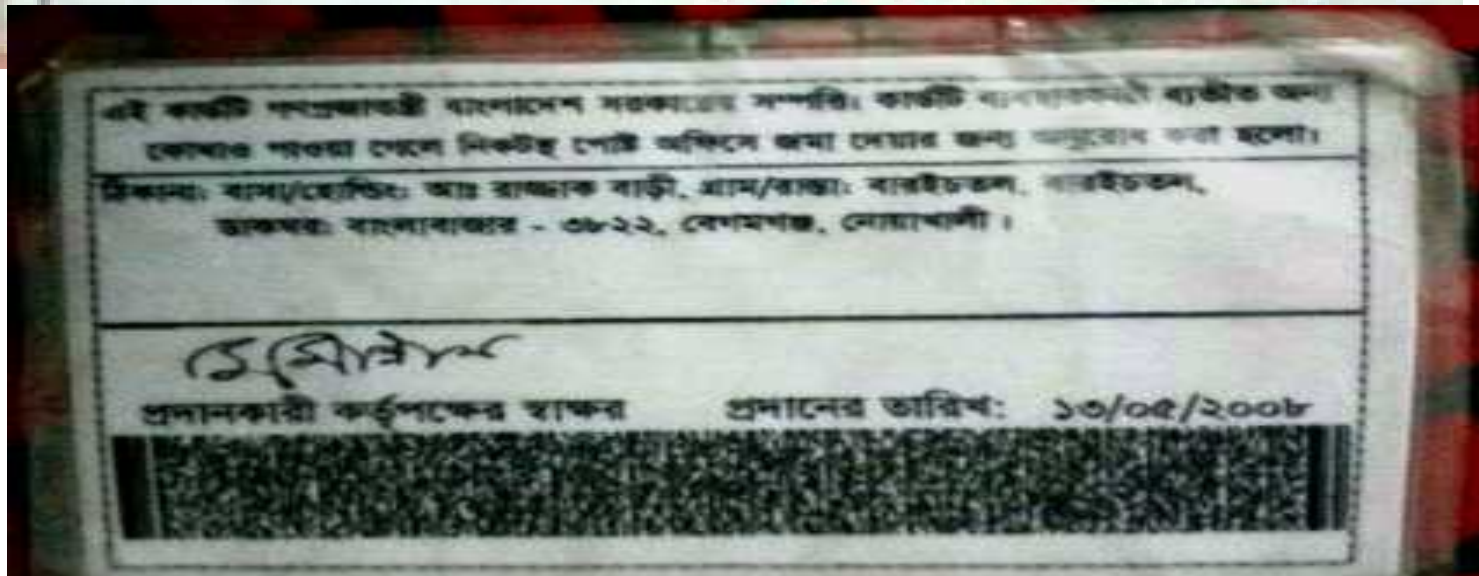 এই কার্ডটি গণপ্রজাতন্ত্রী বাংলাদেশ সরকারের সম্পত্তি। কার্ডটি ব্যবহারকারী ব্যতীত অন্য
কোথাও পাওয়া গেলে নিকটস্থ পোষ্ট অফিসে জমা দেয়ার জন্য অনুরোধ করা হলো।
ঠিকানা: বাসা/হোল্ডিং: আঃ রাজ্জাক বাড়ী, গ্রাম/রাস্তা: বারইচতল, বারইচতল,
ডাকঘর: বাংলাবাজার - ৩৮২২, বেগমগঞ্জ, নোয়াখালী।
প্রদানকারী কর্তৃপক্ষের স্বাক্ষর প্রদানের তারিখ: ১৩/০৫/২০০৮